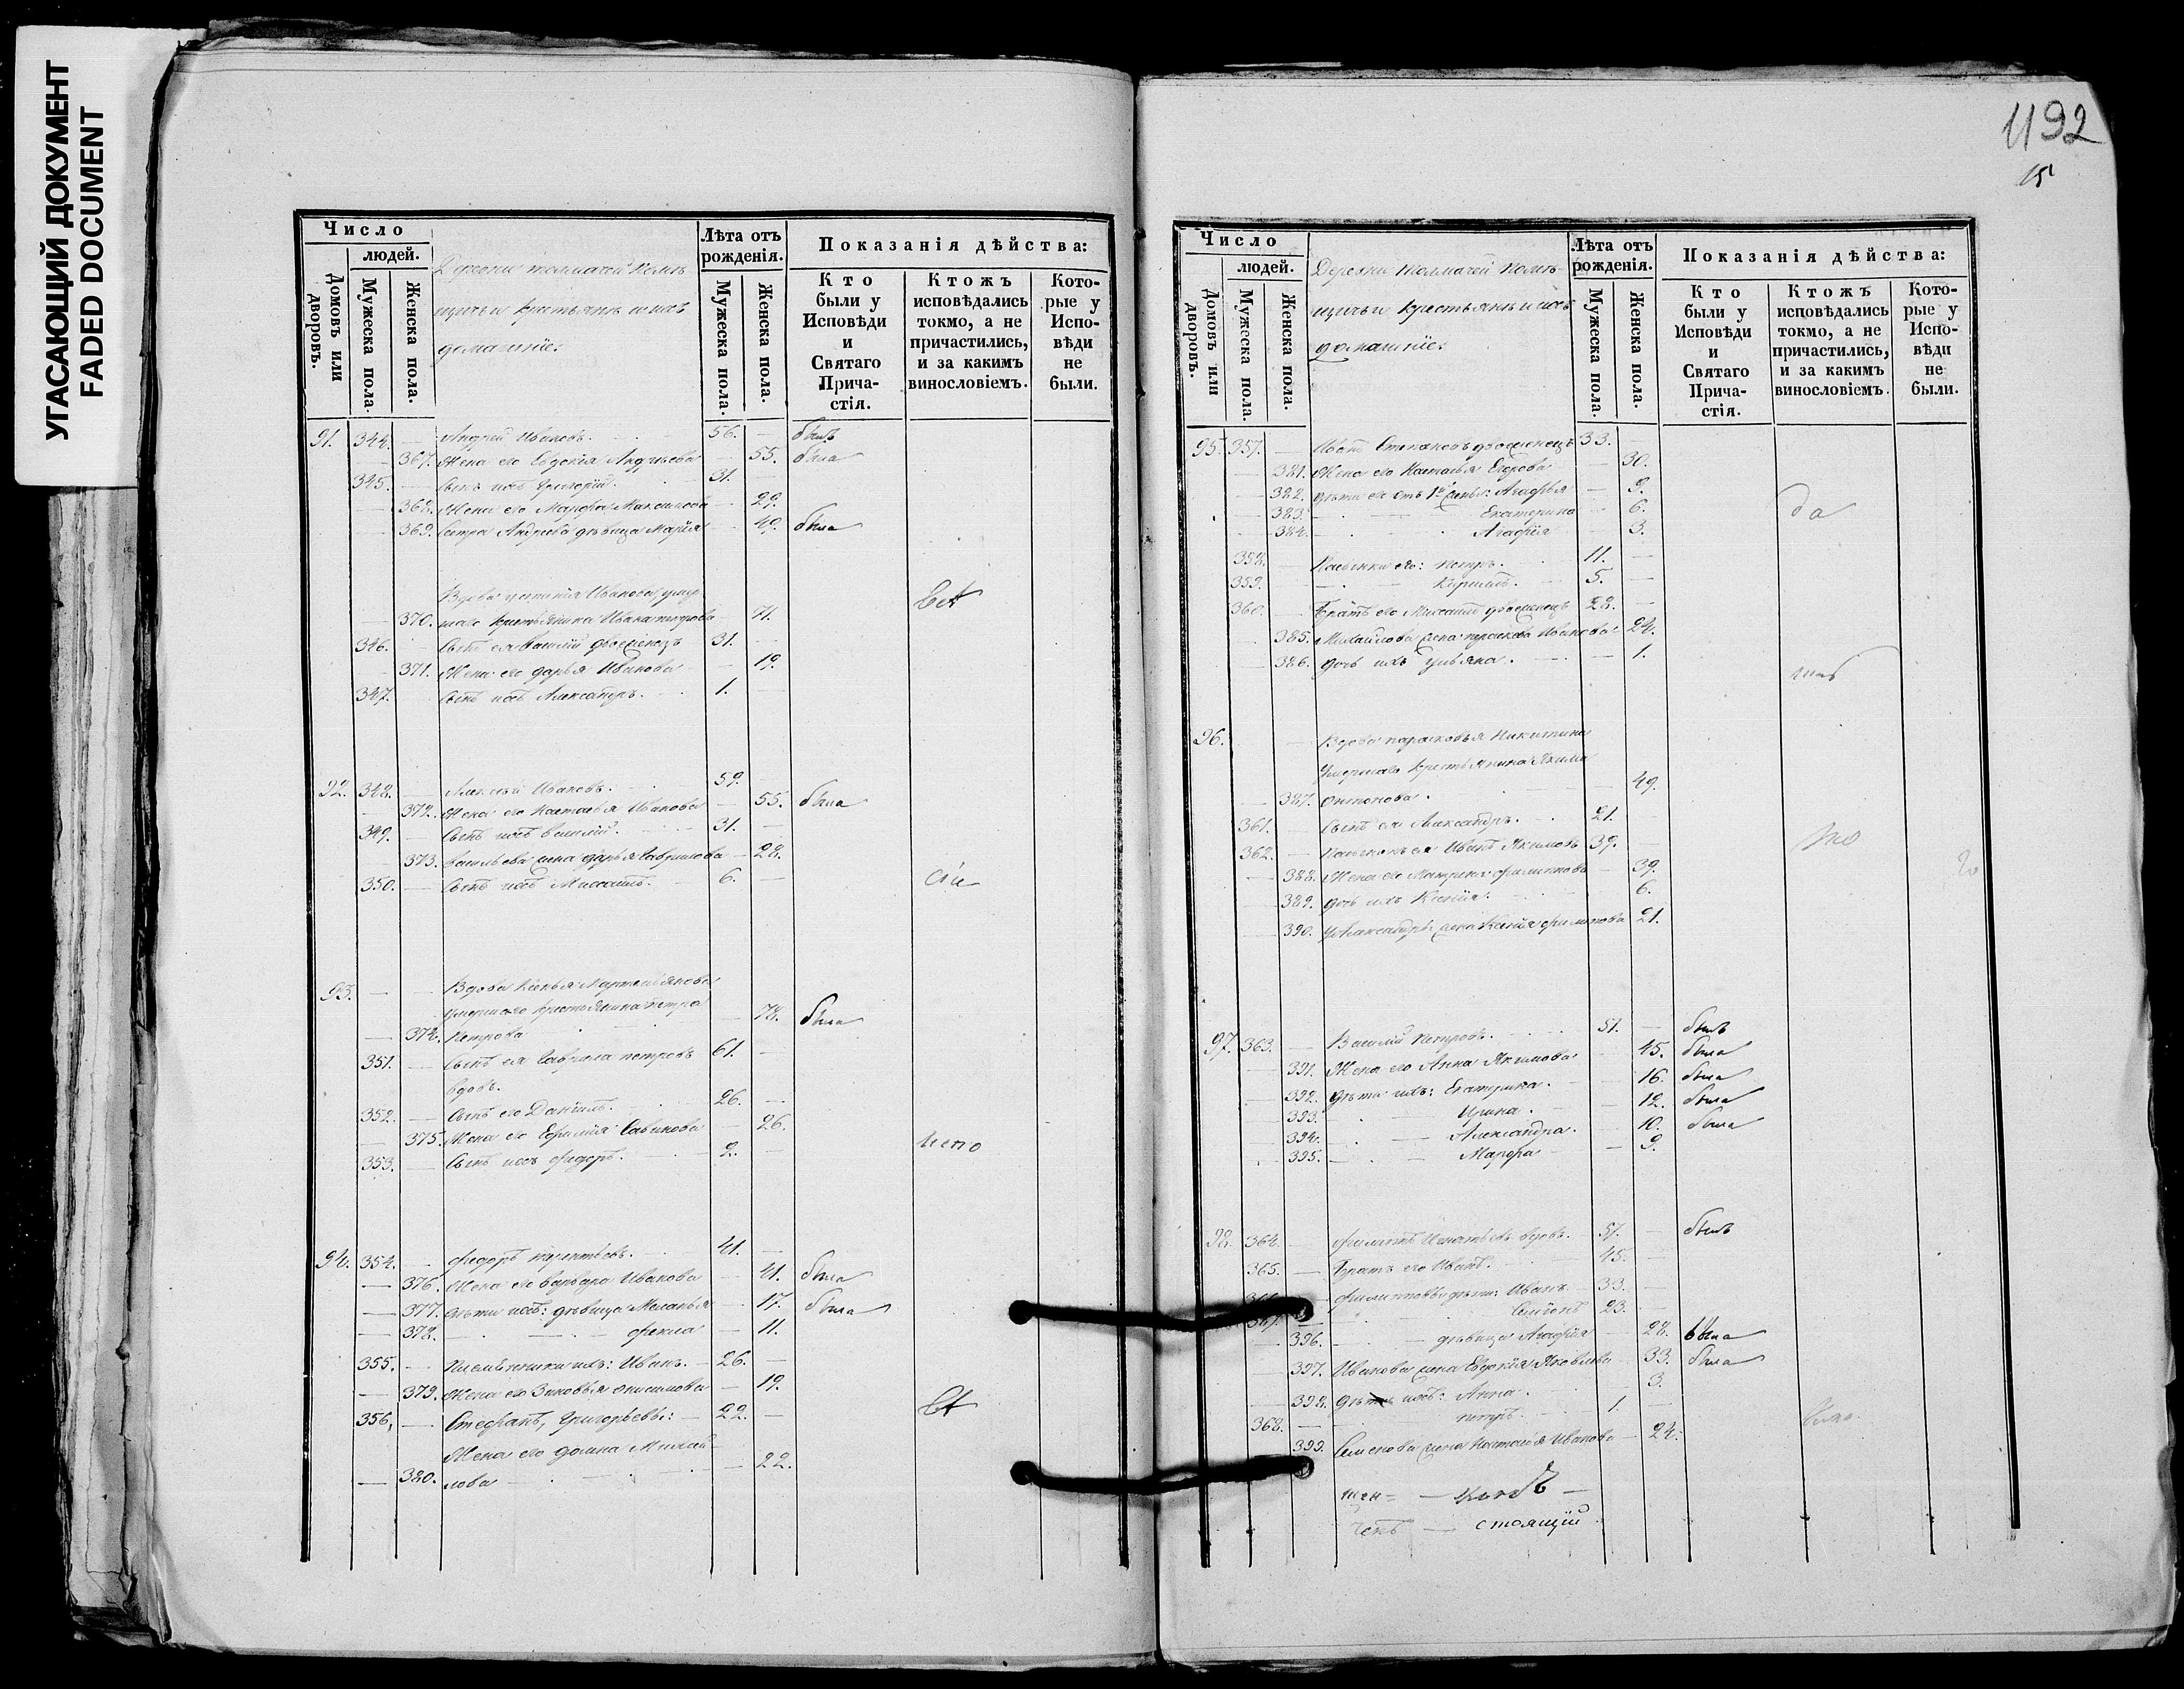 УГАСАЮЩИЙ ДОКУМЕНТ
FADED DOCUMENT
Число
людей.
Домовъ или дворовъ.
Мужеска пола.
Женска пола.
Деревни Толмачей помѣ-
щичьи крестьяне и ихъ
домашніе:
Лѣта отъ рожденія.
Мужеска пола.
Женска пола.
Показанія дѣйства:
Кто были у Исповѣди и Святаго Прича-стія.
Ктожъ исповѣдались токмо, а не причастились, и за какимъ винословіемъ.
Кото-рые у Испо-вѣди не были.
91. 344. — Андрей Ивановъ. 56. — былъ
367. Жена его Евдокія Андреева — 55. была
345. — Сынъ ихъ Григорій. 31. —
368. Жена его Марфа Максимова — 29.
369. Сестра Андреева дѣвица Марія — 49. была
Вдова Устинія Иванова, умер-
370. шаго крестьянина Ивана Петрова 71.
346. Сынъ ея Василій 31. —
371. Жена его Дарья Иванова — 19.
347. Сынъ ихъ Александръ. 1. —
92. 348. — Алексѣй Ивановъ. 59. —
372. Жена его Наталья Иванова — 55. была
349. — Сынъ ихъ Василій. 31. —
373. Васильева жена Дарья Гаврилова — 28.
350. — Сынъ ихъ Михаилъ. 6. —
сіи
93. — — Вдова
умершаго крестьянина Петра
374. Петрова — 78. была
351. — Сынъ ея Гаврила Петровъ 61. —
вдовъ.
352. — Сынъ его Даніилъ. 26. —
375. Жена его Ефимія Савинова — 26.
353. — Сынъ ихъ Федоръ. 2. —
94. 354. — Федоръ Терентьевъ. 41. —
— 376. Жена его Варвара Иванова — 41. была
— 377. Дѣти ихъ: дѣвица Меланья — 17. была
— 378. — Фекла — 11.
355. — Племянники ихъ: Иванъ. — 26. —
— 379. Жена его Зиновья Онисимова — 19.
356. — Стефанъ, Григорьевы: — 22. —
Жена его Домна Михай-
— 380. лова — 22.
1192
15
Число
людей.
Домовъ или дворовъ.
Мужеска пола.
Женска пола.
Деревни Толмачей помѣ-
щичьи крестьяне и ихъ
домашніе:
Лѣта отъ рожденія.
Мужеска пола.
Женска пола.
Показанія дѣйства:
Кто были у Исповѣди и Святаго Прича-стія.
Ктожъ исповѣдались токмо, а не причастились, и за какимъ винословіемъ.
Кото-рые у Испо-вѣди не были.
95. 357. — Иванъ Степановъ 33. —
381. Жена его Наталья Егорова — 30.
382. Дѣти его отъ 1й жены: Агафья — 9.
383. — Екатерина — 6.
да
384. — Агафія — 3.
358. — Пасынки его: Петръ. 11. —
359. — Кирилъ. 5. —
360. — Братъ его Михаилъ 28. —
385. Михайлова жена Прасковья Иванова 24.
386. Дочь ихъ Ульяна. — 1.
96. — Вдова Парасковья Никитина
умершаго крестьянина Якима
387. Антонова. 49.
361. — Сынъ ея Александръ. 21. —
362. — Пасынокъ ея Иванъ Якимовъ 39. —
388. Жена его Матрена Филиппова — 39.
389. Дочь ихъ Ксенія. 6.
390. У Александра жена Ксенія Филипова 21.
97. 363. — Василій Петровъ. 51. — былъ
391. Жена его Анна Якимова 45. была
392. Дѣти ихъ: Екатерина. — 16. была
393. Ирина. — 12. была
394. — Александра. — 10. была
395. — Марфа — 9.
98. 364. — Филиппъ Игнатьевъ вдовъ. 57. — былъ
365. — Братъ его Иванъ. 45. —
Филипповы дѣти: Иванъ. 33. —
367. — 23. —
396. — дѣвица Агафія 28. была
397. Иванова жена Евдокія Яковлева 33. была
398. ихъ: Анна. — 3.
368. — Петръ. 1. —
399. Семенова жена Наталья Иванова — 24.
стоящій